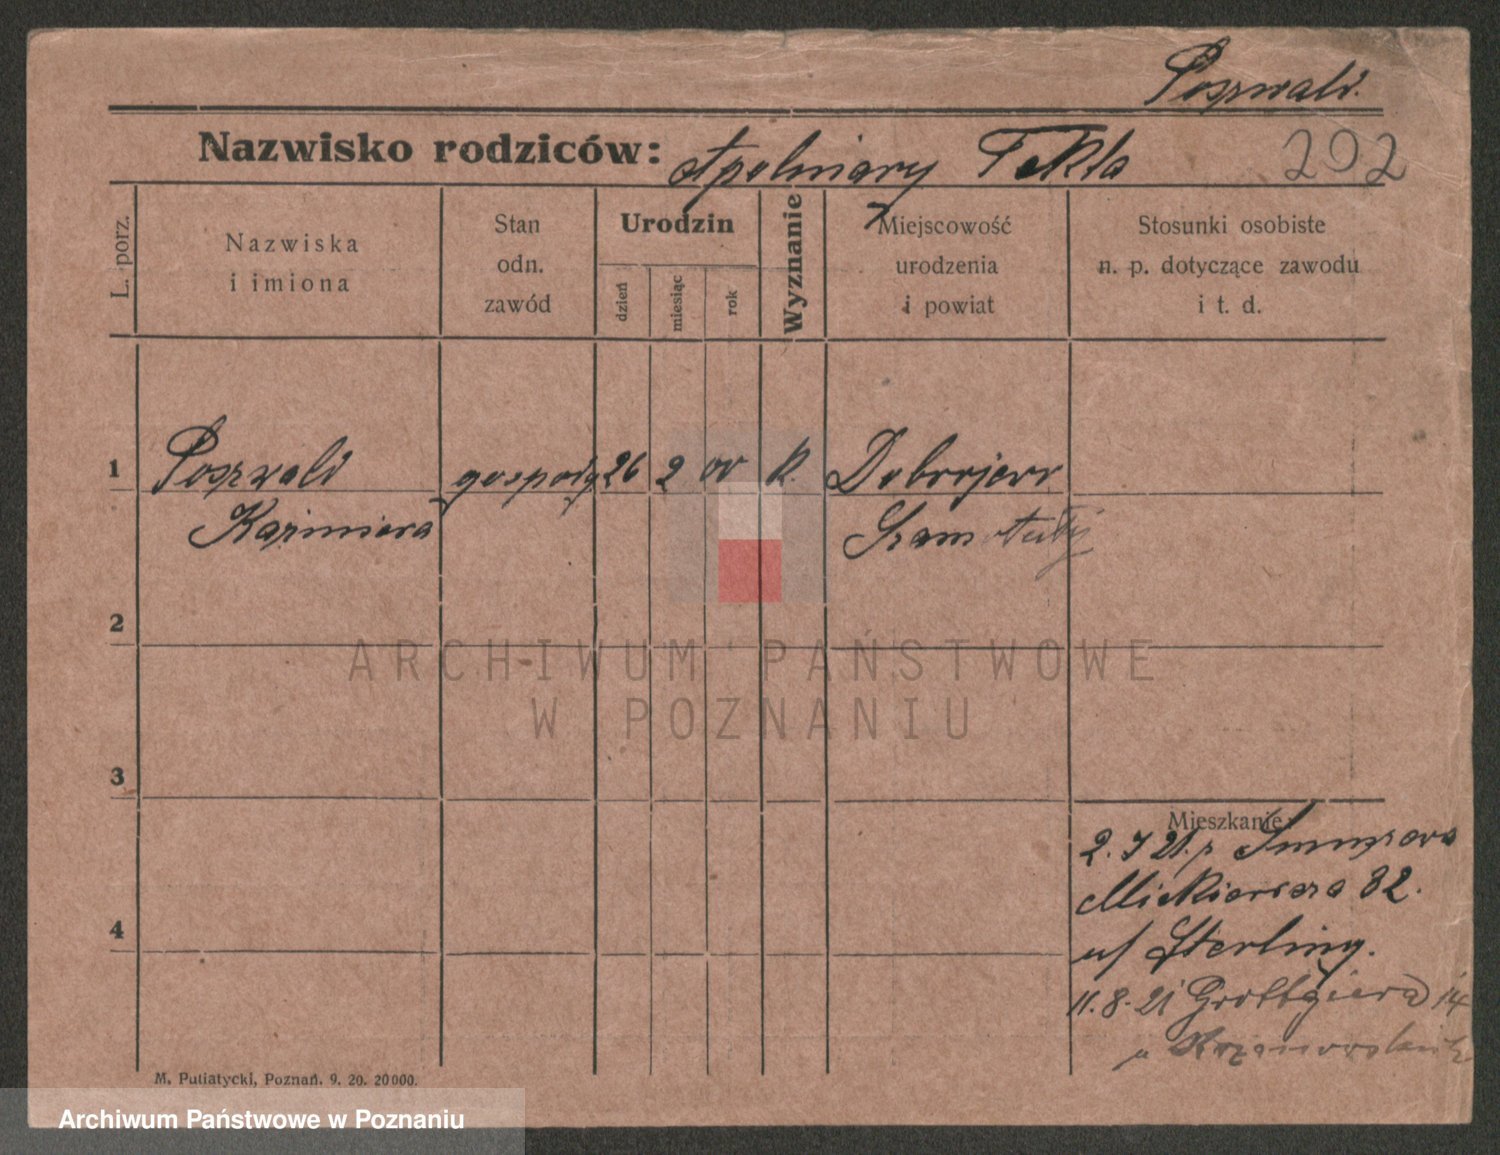 Poszwald.
Nazwisko rodziców: Apolinary Tekla 292
L. porz.
Nazwiska i imiona
Stan odn. zawód
Urodzin
dzień miesiąc rok
Wyznanie
Miejscowość urodzenia i powiat
Stosunki osobiste n. p. dotyczące zawodu i t. d.
1 Poszwald gospody 26 2 00 k. Dobrojewo
Kazimiera Szamotuły
2
ARCHIWUM PAŃSTWOWE
W POZNANIU
3
Mieszkanie:
2. 7 21. z
Mickiewicza 32.
4
u/ Sterling.
11.8.21 Grottgiera 14
u
M. Putiatycki, Poznań. 9. 20. 20000.
Archiwum Państwowe w Poznaniu